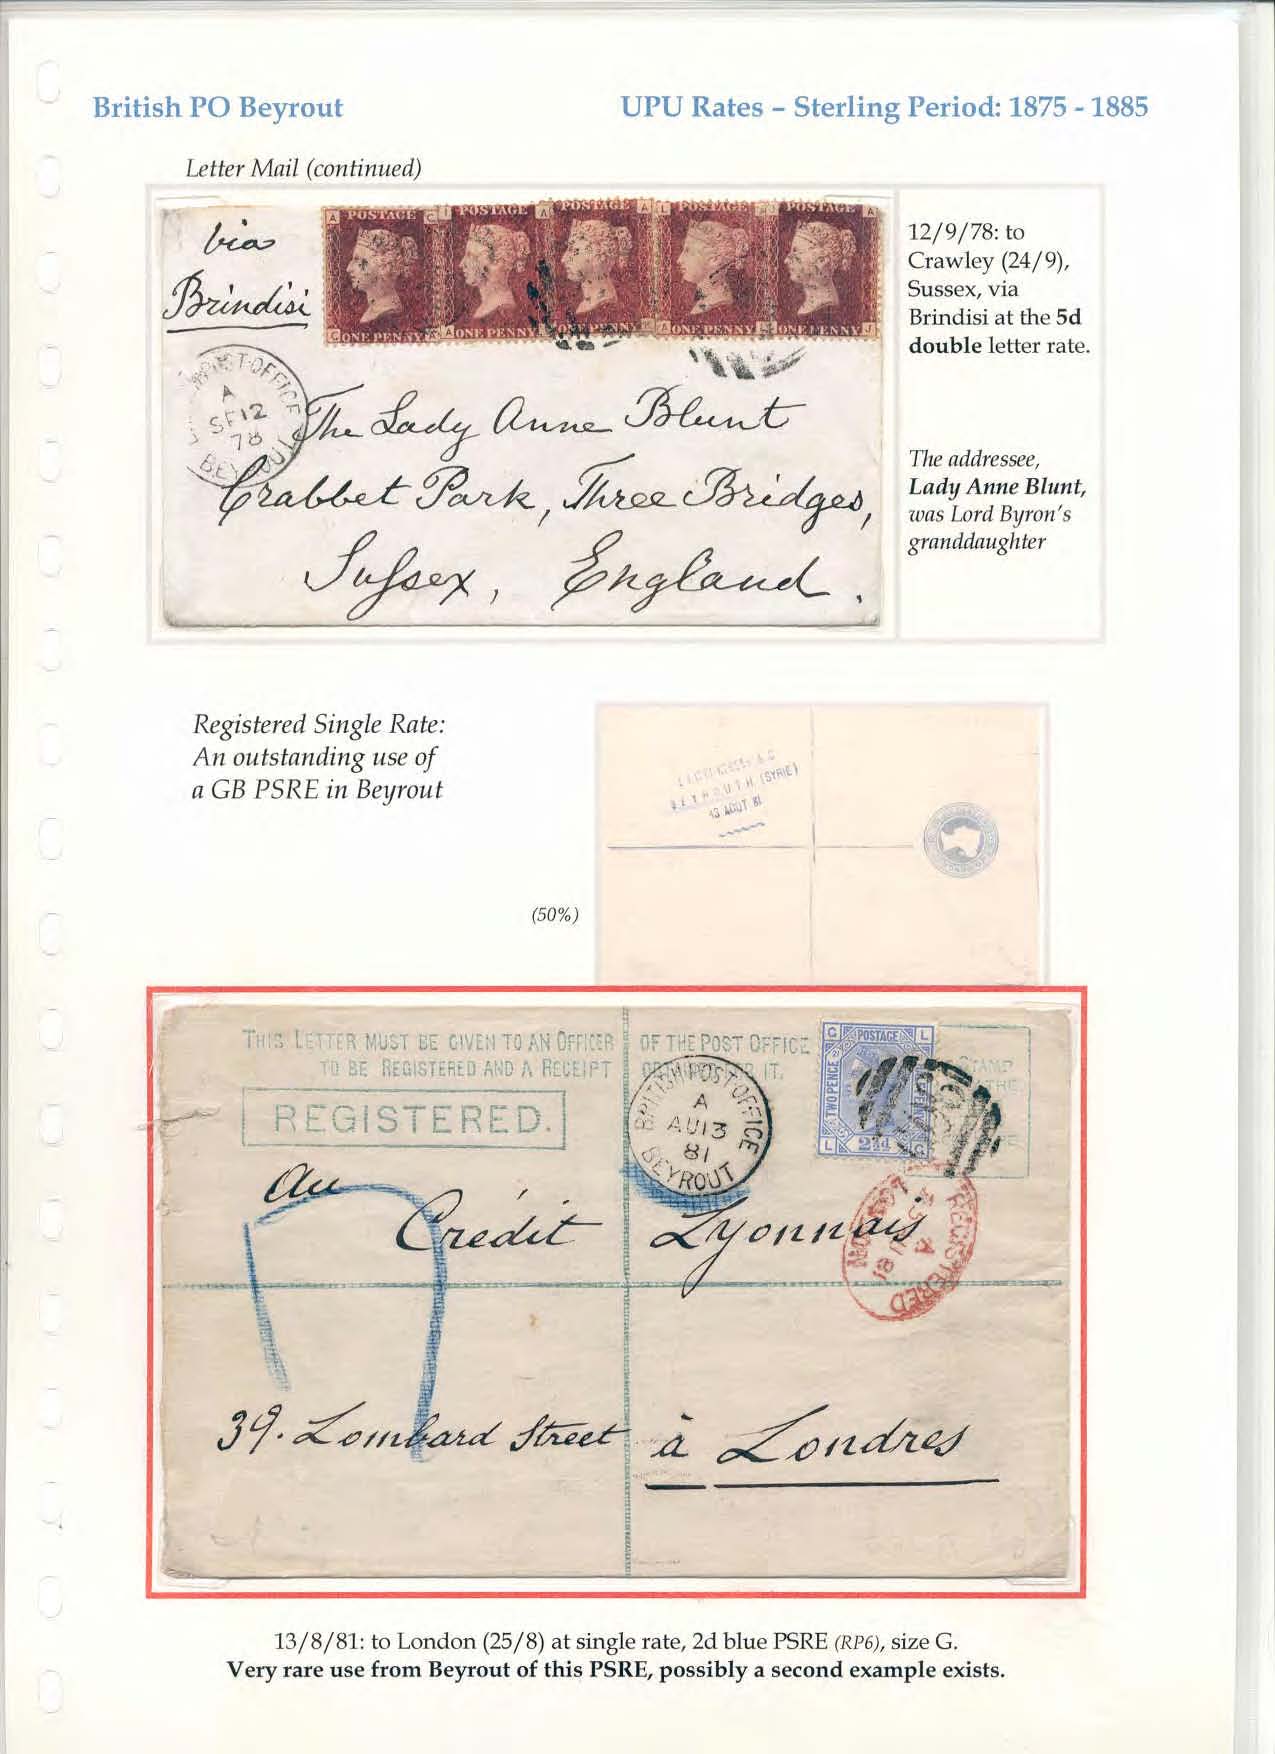 British PO Beyrout
UPU Rates – Sterling Period: 1875 - 1885
Letter Mail (continued)
via
Brindisi
A POSTAGE C
POSTAGE A
POSTAGE A
L POSTAGE
POSTAGE A
C ONE PENNY
A ONE PENNY
ONE PENNY K
A ONE PENNY
ONE PENNY J
POST OFFICE
A
SE 12
78
BEYROUT
The Lady Anne Blunt
Crabbet Park, Three Bridges,
Sussex, England.
12/9/78: to
Crawley (24/9),
Sussex, via
Brindisi at the 5d
double letter rate.
The addressee,
Lady Anne Blunt,
was Lord Byron's
granddaughter
Registered Single Rate:
An outstanding use of
a GB PSRE in Beyrout
BEYROUTH (SYRIE)
13 AOUT 81
(50%)
THIS LETTER MUST BE GIVEN TO AN OFFICER OF THE POST OFFICE
TO BE REGISTERED AND A RECEIPT OBTAINED FOR IT.
REGISTERED.
STAMP
THE
BRITISH POST OFFICE
A
AU 13
81
BEYROUT
G POSTAGE L
TWO PENCE
L 2½d G
REGISTERED
LONDON
A
81
Au
Crédit Lyonnais
39. Lombard Street à Londres
13/8/81: to London (25/8) at single rate, 2d blue PSRE (RP6), size G.
Very rare use from Beyrout of this PSRE, possibly a second example exists.